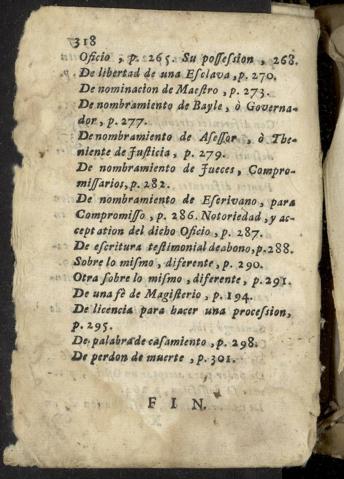 318
Oficio, p. 265. Su possession, 268.
De libertad de una Esclava, p. 270.
De nominacion de Maestro, p. 273.
De nombramiento de Bayle, ò Governa-
dor, p. 277.
De nombramiento de Asessor, ò The-
niente de Justicia, p. 279.
De nombramiento de Jueces, Compro-
missarios, p. 282.
De nombramiento de Escrivano, para
Compromisso, p. 286. Notoriedad, y ac-
ceptation del dicho Oficio, p. 287.
De escritura testimonial de abono, p. 288.
Sobre lo mismo, diferente, p. 290.
Otra sobre lo mismo, diferente, p. 291.
De una fè de Magisterio, p. 194.
De licencia para hacer una procession,
p. 295.
De palabra de casamiento, p. 298.
De perdon de muerte, p. 301.
FIN.